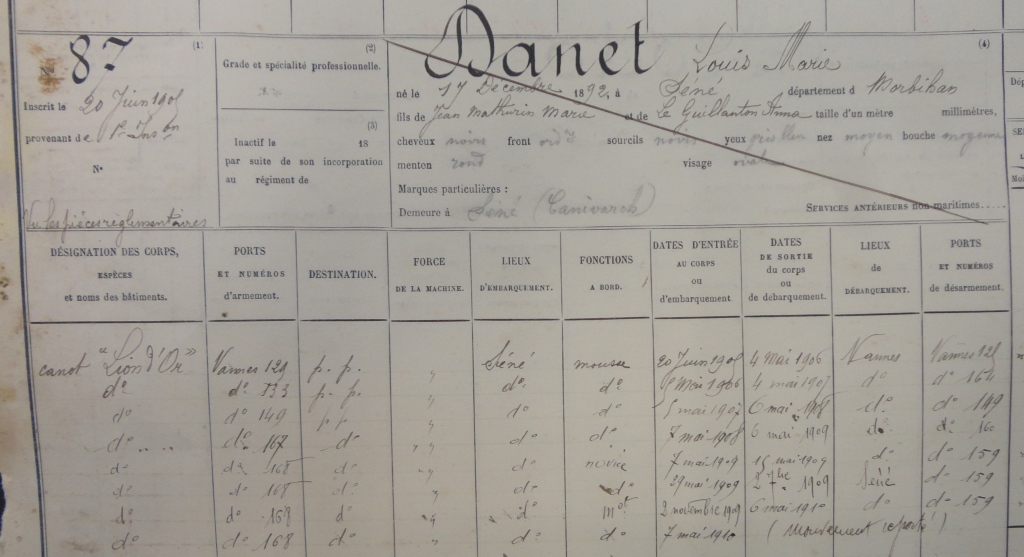 (1)
Nº 87
Inscrit le 20 Juin 1905
provenant de Pre Inson
Nº
Vu les pièces réglementaires
(2)
Grade et spécialité professionnelle.
(3)
Inactif le 18
par suite de son incorporation
au régiment de
Danet Louis Marie (4)
né le 17 Décembre 1892, à Séné département d Morbihan
fils de Jean Mathurin Marie et de Le Guillanton Anna taille d'un mètre millimètres,
cheveux noirs front ord sourcils noirs yeux nez moyen bouche moyenne
menton rond visage ovale
Marques particulières :
Demeure à Séné (Canivarch)
SERVICES ANTÉRIEURS non maritimes.....
DÉSIGNATION DES CORPS, ESPÈCES et noms des bâtiments. PORTS ET NUMÉROS d'armement. DESTINATION. FORCE DE LA MACHINE. LIEUX D'EMBARQUEMENT. FONCTIONS A BORD. DATES D'ENTRÉE AU CORPS OU d'embarquement DATES DE SORTIE du corps ou de débarquement. LIEUX de DÉBARQUEMENT. PORTS ET NUMÉROS de désarmement.
canot "Lion d'Or" Vannes 129 p. p. " Séné mousse 20 Juin 1905 4 Mai 1906 Vannes Vannes 125
dº dº 333 p. p. " dº dº 5 Mai 1906 4 mai 1907 dº dº 164
dº dº 149 p p " dº dº 5 mai 1907 6 mai 1908 dº dº 149
dº .. .. dº 167 dº " " dº dº 7 mai 1908 6 mai 1909 dº dº 160
dº dº 168 dº " " dº novice 7 mai 1909 15 mai 1909 dº dº 159
dº dº 168 dº " dº dº 29 mai 1909 2 7bre 1909 Séné dº 159
dº dº 158 dº " dº mot 2 novembre 1909 6 mai 1910 dº dº 159
dº dº 168 dº " dº dº 7 mai 1910 (Mouvement reporté)